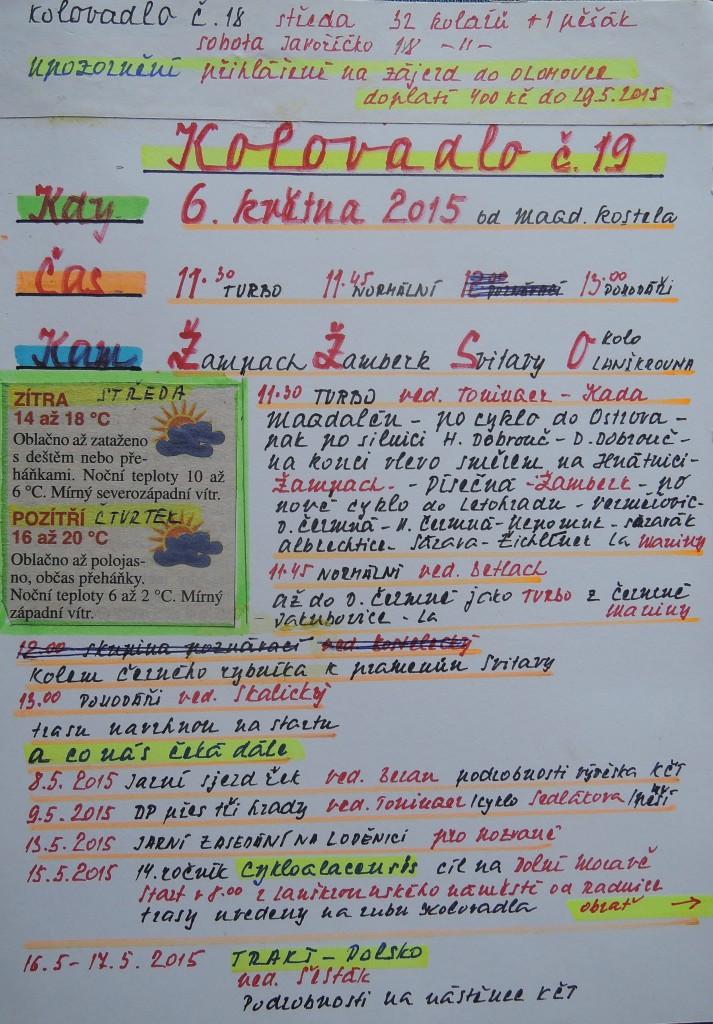 Kolovadlo č.18 středa 32 kolařů +1 pěšák
sobota Javoříčko 18 -"-
upozornění přihlášené na zájezd do OLOMOUCE
doplatí 400 kč do 29.5.2015
Kolovadlo č.19
Kdy 6. května 2015 od Magd. kostela
Čas 11.30 TURBO 11.45 NORMÁLNÍ 12.00 poznávací 13.00 POHODÁŘI
Kam Žampach Žamberk Svitavy Okolo LANŠKROUNA
ZÍTRA STŘEDA
14 až 18 °C
Oblačno až zataženo
s deštěm nebo pře-
háňkami. Noční teploty 10 až
6 °C. Mírný severozápadní vítr.
POZÍTŘÍ ČTVRTEK
16 až 20 °C
Oblačno až polojas-
no, občas přeháňky.
Noční teploty 6 až 2 °C. Mírný
západní vítr.
11.30 TURBO ved. Toninger - Kada
Magdalén - po cyklo do Ostrova -
pak po silnici H. Dobrouč - D. Dobrouč -
na konci vlevo směrem na Hnátnici -
Žampach - Písečná - Žamberk - po
nové cyklo do Letohradu - Verměřovic -
D. Čermná - H. Čermná - Nepomuk -
albrechtice - Sázava - La Maniny
11.45 NORMÁLNÍ ved. Betlach
až do D. Čermné jako TURBO z Čermné
Jakubovice - La Maniny
12.00 skupina poznávací ved. Kostelecký
kolem černého rybníka k pramenům Svitavy
13.00 POHODÁŘI ved. Skalický
trasu navrhnou na startu
a co nás čeká dále
8.5. 2015 Jarní sjezd řek ved. Beran podrobnosti vývěska KČT
9.5. 2015 DP přes tři hrady ved. Toninger/cyklo Sedlákova/pěší
13.5. 2015 JARNÍ ZASEDÁNÍ NA LODĚNICI pro pozvané
15.5. 2015 14. ročník Cykloalacensis cíl na Dolní Moravě
Start v 8.00 z Lanškrounského náměstí od radnice
trasy uvedeny na rubu Kolovadla obrať →
16.5 - 17.5. 2015 TRAKT - Polsko
ved. Šisták
Podrobnosti na nástěnce KČT